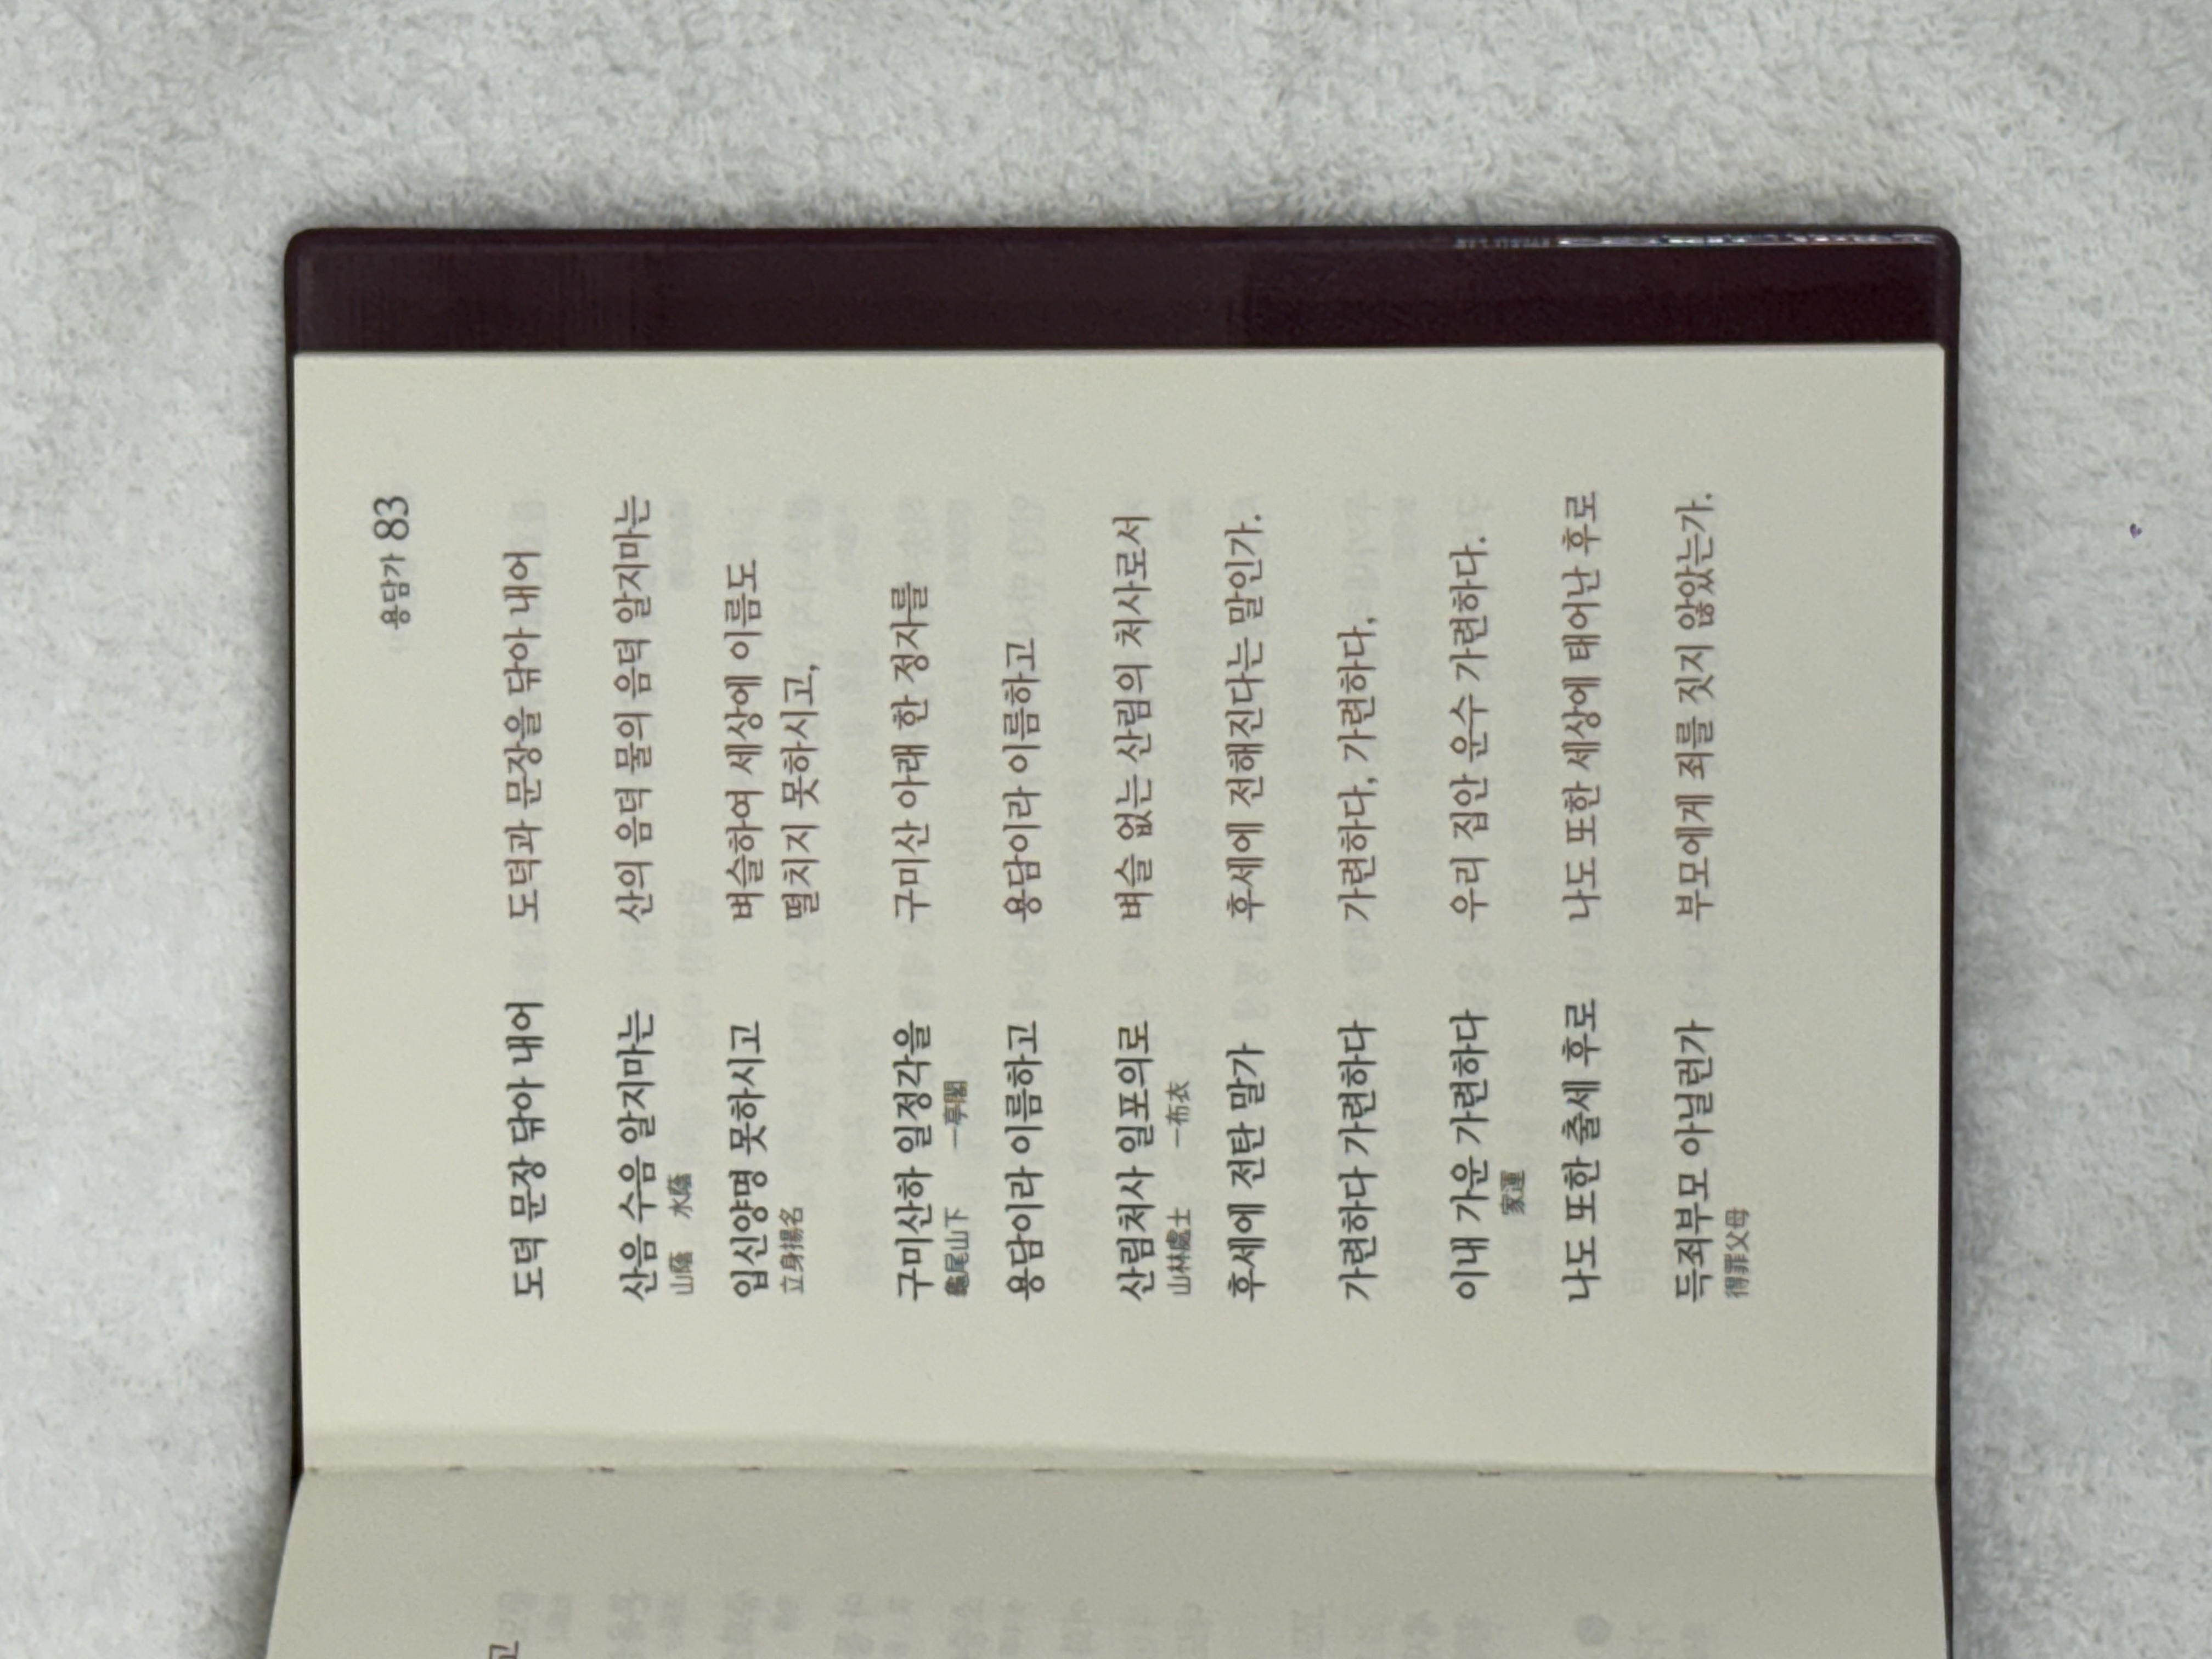 용담가 83
도덕 문장 닦아 내어 도덕과 문장을 닦아 내어
산음 수음 알지마는 산의 음덕 물의 음덕 알지마는
山蔭 水蔭
입신양명 못하시고 벼슬하여 세상에 이름도
立身揚名 떨치지 못하시고,
구미산하 일정각을 구미산 아래 한 정자를
龜尾山下 一亭閣
용담이라 이름하고 용담이라 이름하고
산림처사 일포의로 벼슬 없는 산림의 처사로서
山林處士 一布衣
후세에 전탄 말가 후세에 전해진다는 말인가.
가련하다 가련하다 가련하다, 가련하다,
이내 가운 가련하다 우리 집안 운수 가련하다.
家運
나도 또한 출세 후로 나도 또한 세상에 태어난 후로
득죄부모 아닐런가 부모에게 죄를 짓지 않았는가.
得罪父母
고